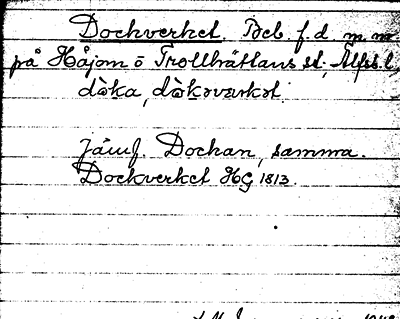 Dockverket. Beb. f. d. m. m.
på Håjom o Trollhättans st, Älfsb.l.
då̀ka, då̀kəværkət.
Jämf. Dockan, samma.
Dockverket HG 1813.